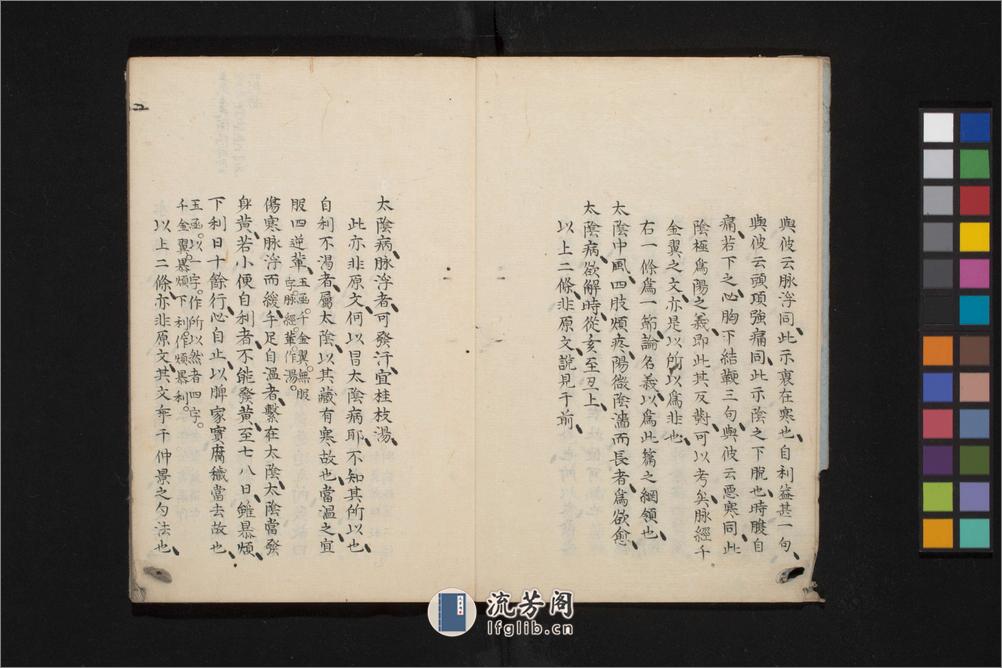 與彼云脉浮同、此示裏在寒也、自利益甚一句、
與彼云頭項強痛同、此示陰之下脫也、時腹自
痛、若下之心胸下結鞕三句、與彼云惡寒同、此
陰極爲陽之義、即此其反對、可以考矣、脉經千
金翼之文亦是以所以爲非也、
右一條爲一節、論名義、以爲此篇之綱領也、
太陰中風、四肢煩疼、陽微陰濇而長者、爲欲愈、
太陰病、欲解時、從亥至丑上、
以上二條、非原文、說見于前、
太陰病、脉浮者、可發汗、宜桂枝湯、
此亦非原文、何以冒太陰病耶、不知其所以也、
自利不渴者、屬太陰、以其藏有寒故也、當溫之、宜
服四逆輩、玉函。千金翼。無服
字。脉經。輩。作湯。
傷寒脉浮而緩、手足自溫者、繫在太陰、太陰當發
身黃、若小便自利者、不能發黃、至七八日、雖暴煩
下利日十餘行、心自止、以脾家實、腐穢當去故也、
玉函。以一字。作所以然者四字。
千金翼。暴煩下利。作煩暴利。
以上二條、亦非原文、其文弇于仲景之句法也、
流芳阁
lfglib.cn